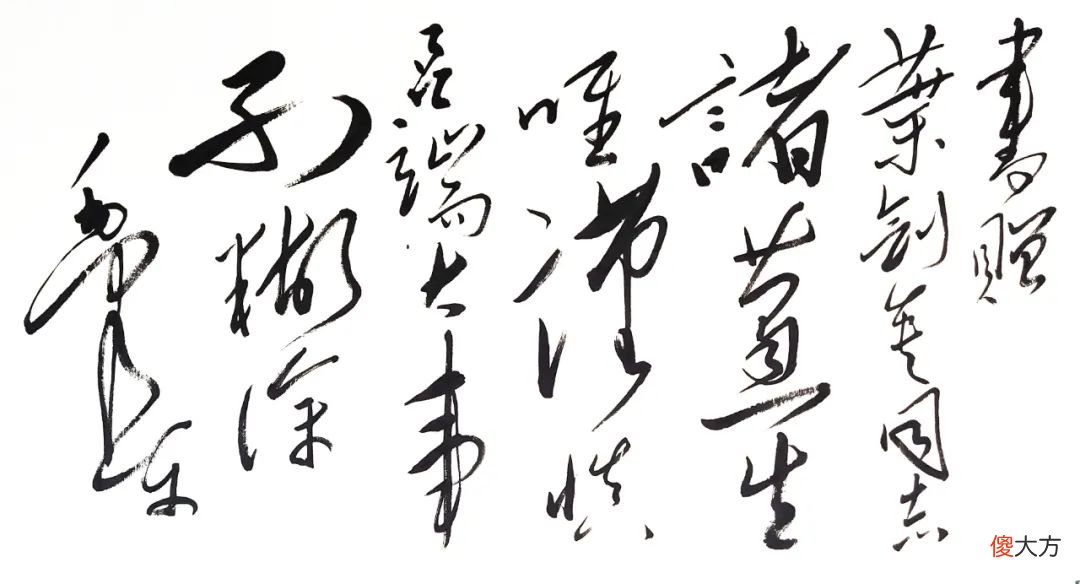 書贈
葉劍英同志
諸葛一生
唯谨慎
吕端大事
不糊涂
毛泽东
傻大方